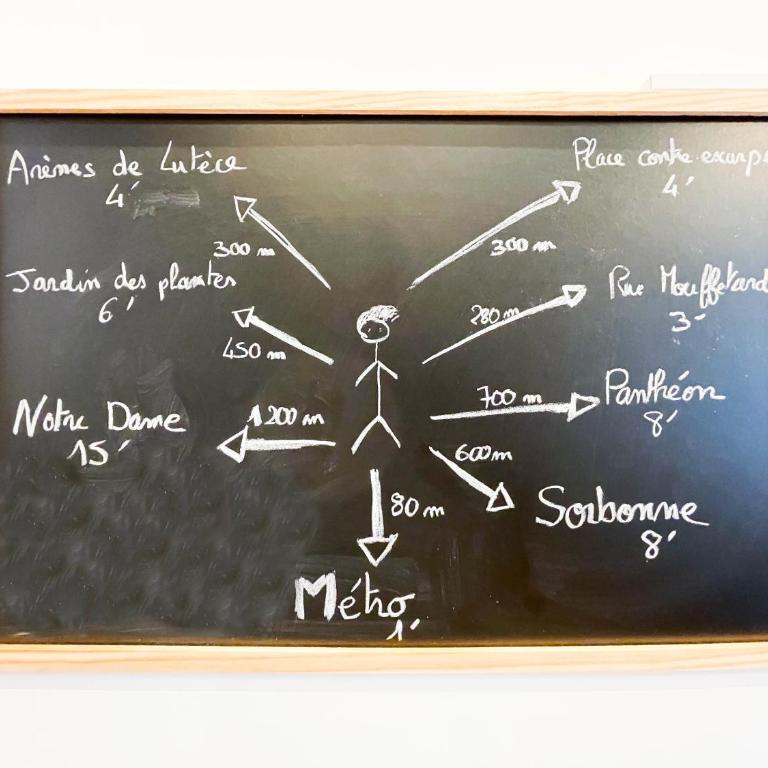 Arènes de Lutèce
4'
300 m
Place contre-escarp
4'
300 m
Jardin des plantes
6'
450 m
Rue Mouffetard
3'
280 m
Notre Dame
15'
1200 m
Panthéon
8'
700 m
Sorbonne
8'
600 m
80 m
Métro
1'